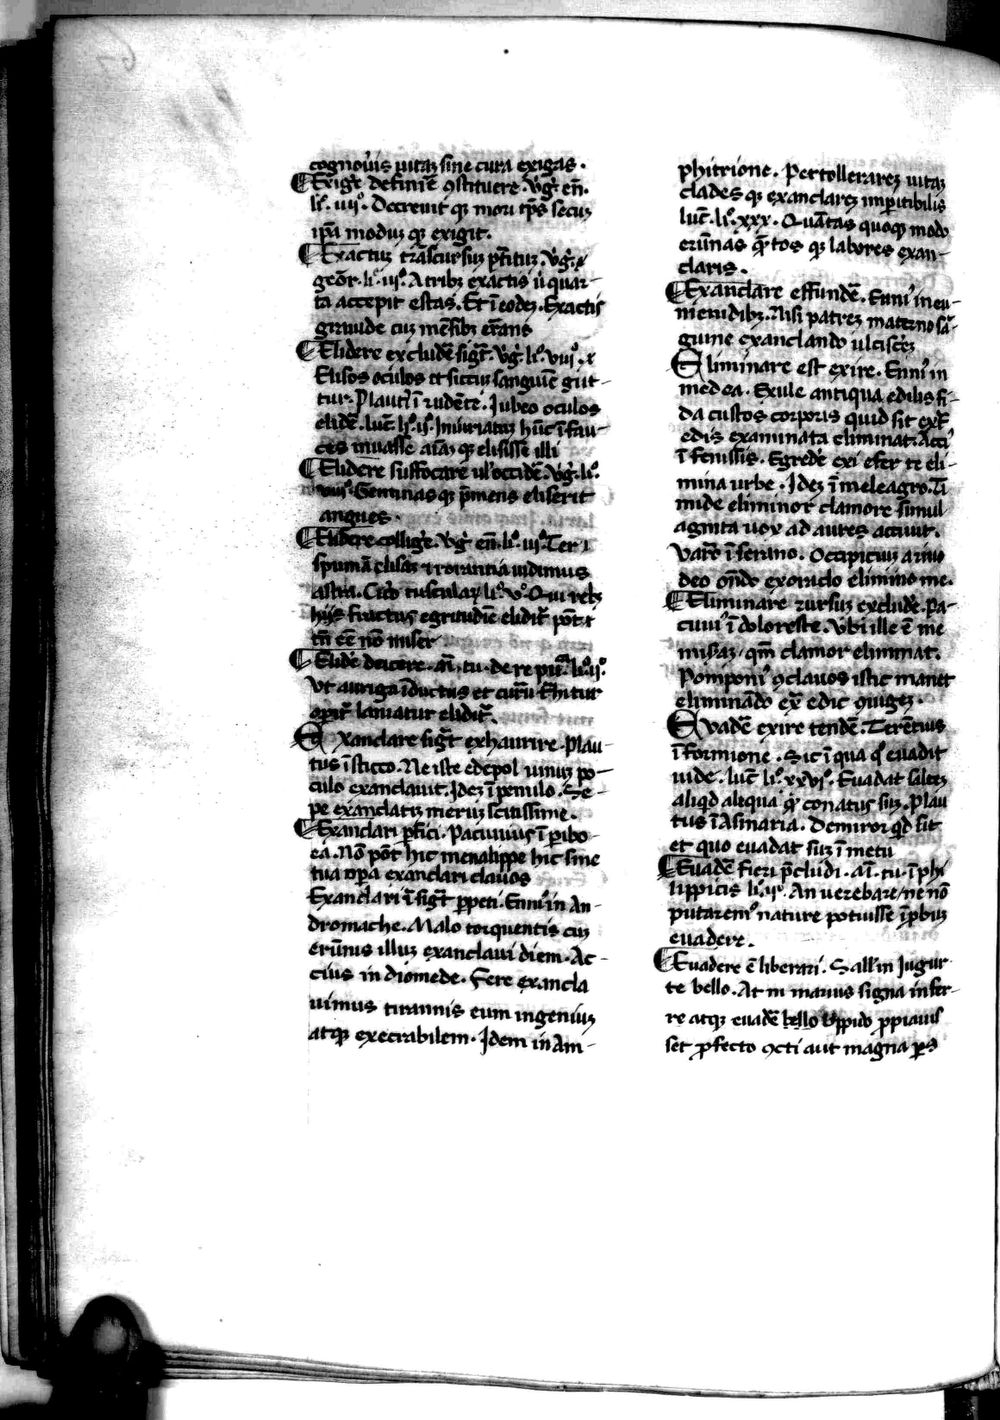 cognoūis uitaꝫ sine cura exigas.
Exigr̄e definir̄e ꝯstituere. Vg̓. en̄.
li°. iiii°. Decreuit qꝫ mori tp̄s secuꝫ
ip̄a moduꝫ qꝫ exigit.
Exactuꝫ trāscursuꝫ
geōr. li°. iii°. A tribꝫ exactis ū quar-
ta accepit estas. Et ī eodeꝫ. Exactis
grauide cuꝫ mēsibꝫ erāns
Elidere excludē sigt̄. Vg̓. li°. viii°.
Elisos oculos et siccuꝫ sanguīe gut-
tur. Plautꝰ ī rudēte. Jubeo oculos
elidē. Luc̄. li°. Iniuriatuꝫ hūc ī fau-
ces inuasse aīaꝫ qꝫ elisisse illi
Elidere suffocare ul̓ occidē. Vg̓. li°.
viii°. Geminas qꝫ p̄mens eliserit
angues.
Elidere colligē. Vg̓. en̄. li°. iii°. Ter
spumā elisaꝫ ⁊ rorantia uidimus
astra. Cic̄o tusculaꝝ li°. v°. Qui rebꝫ
hijs fractus egritudīe elidit̄ pōt
tn̄ eē nō miser
Elidē deicere. de re pu. li°. ii°.
Vt auriga īductus et curru
opit̄ laniatur elidit̄.
Exanclare sigt̄ exhaurire. Plau-
tus ī sticco. Ne iste edepol uinuꝫ po-
culo exanclauit. Ideꝫ ī penulo. Se-
pe exanclatuꝫ meruꝫ scitissime.
Exanclari p̄fici. Pacuuius ī peribo-
ea. Nō pōt hic menalippe hic sine
tua opa exanclari clauos
Exanclari ī sigt̄ perpeti. Enniꝰ in An-
dromache. Malo torquentis cuꝫ
erūnis illuꝫ exanclaui diem. Ac-
cius in diomede. Fere exancla
uimus tirannis eum ingeniuꝫ
atqꝫ execrabilem. Idem in Am-
phitrione. Pertollerareꝫ uitaꝫ
clades qꝫ exanclareꝫ impetibilis
Luc̄. li°. xxx. Quātas quoqꝫ modo
erūnas quātos qꝫ labores exan-
claris.
Exanclare effundē. Enniꝰ in eu-
menidibꝫ. Nisi patreꝫ materno sā-
guine exanclando ulcisceꝫ
Eliminare est exire. Enniꝰ in
medea. Exule antiqua edilis fi-
da custos corporis quid sit ext̄
edis exanimata eliminat. Acciꝰ
ī fenissis. Egredē exi efer te eli-
mina urbe. Ideꝫ ī meleagro. Ti
mide eliminor clamore simul
agnita uox ad aures accuit.
Varo ī serano. Occipicuꝫ a riuo
deo ondo exoraclo elimino me.
Eliminare rursuꝫ excludē. Pa-
cuuiꝰ ī doloreste. Vbi ille ē me
misaꝫ, qm̄ clamor eliminat.
Pomponiꝰ ꝯclauos istic manet
eliminādo ex̄ edic ꝯiugeꝫ.
Euadē exire tendē. Terētius
ī formione. Sic ī qua qd̓ euadit
uide. Luc̄. li°. xxvi°. Euadat salteꝫ
aliqd aliqua qd̓ conatus suꝫ. Plau
tus ī Asinaria. Demiror qd sit
et quo euadat suꝫ ī metu
Euadē fieri p̄cludi. M̄. tu. ī phi
lippicis li°. iii°. An uerebare, ne nō
putaremꝰ nature potuisse īprobus
euadere.
Euadere ē liberari. Sall̓. in Jugur-
te bello. At m marius signa infer-
re atqꝫ euadē bello oppido propiauis
set profecto ꝯcti aut magna pars